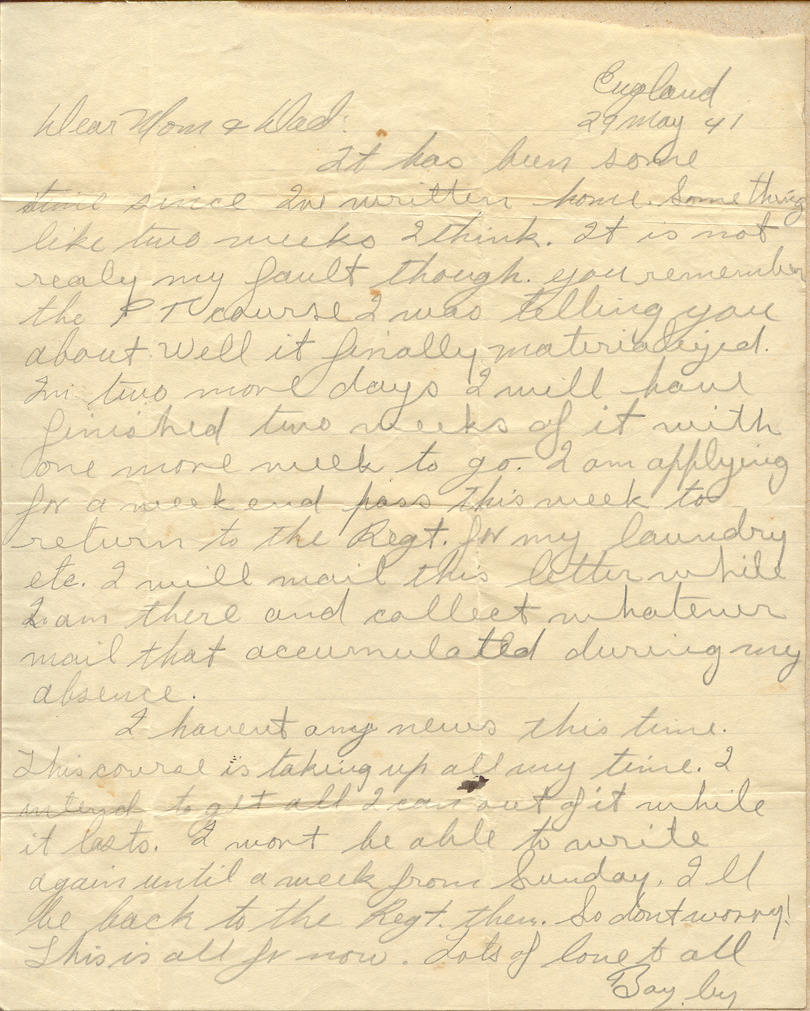 England
29 May 41
Dear Mom & Dad:
It has been some
time since I've written home. Something
like two weeks I think. It is not
realy my fault though. you remember
the P T course I was telling you
about. Well it finally materialized.
In two more days I will have
finished two weeks of it with
one more week to go. I am applying
for a week end pass this week to
return to the Regt. for my laundry
etc. I will mail this letter while
I am there and collect whatever
mail that accumulated during my
absence.
I havent any news this time.
This course is taking up all my time. I
intend to get all I can out of it while
it lasts. I wont be able to write
again until a week from Sunday. I ll
be back to the Regt. then. So dont worry!
This is all for now. Lots of love to all